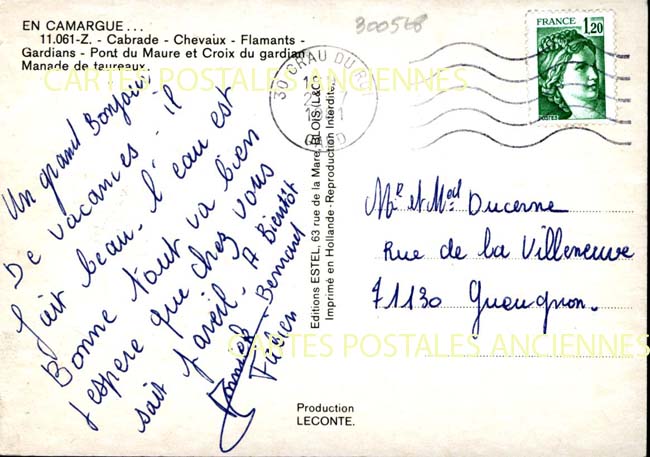 EN CAMARGUE...
11.061-Z. - Cabrade - Chevaux - Flamants -
Gardians - Pont du Maure et Croix du gardian
Manade de taureaux.
300568
FRANCE
1,20
POSTES
30 GRAU DU R
GARD
CARTES POSTALES ANCIENNES
Un grand Bonjour
De vacances - il
fait beau. l'eau est
Bonne tout va bien
J'espere que chez vous
sait pareil. A Bientôt
Bernard
Fabien
Editions ESTEL, 63 rue de la Mare, BLOIS (L&C)
Imprimé en Hollande-Reproduction Interdite.
Mr et Med Ducerne
Rue de la Villeneuve
71130 Gueugnon.
CARTES POSTALES ANCIENNES
Production
LECONTE.